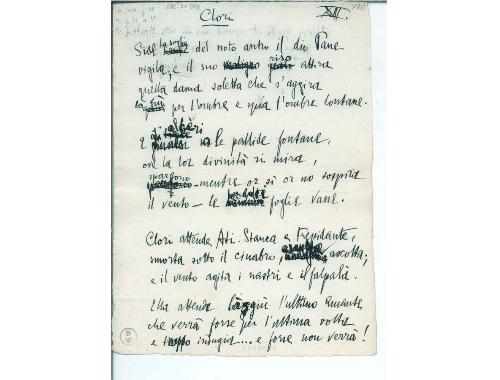 Clori
XII.
Sulla soglia del noto antro il dio Pane
vigila, e il suo maligno riso attira
quella dama soletta che s'aggira
laggiù per l'ombre e spia l'ombre lontane.
E gli alberi e le pallide fontane,
ove la lor divinità si mira,
spargono – mentre or sì or no sospira
il vento – le foglie vane.
Clori attende Ati. Stanca e trepidante,
smorta sotto il cinabro, ascolta;
e il vento agita i nastri e il falpalà.
Ella attende laggiù l'ultimo amante
che verrà forse per l'ultima volta
e troppo indugia.... e forse non verrà!